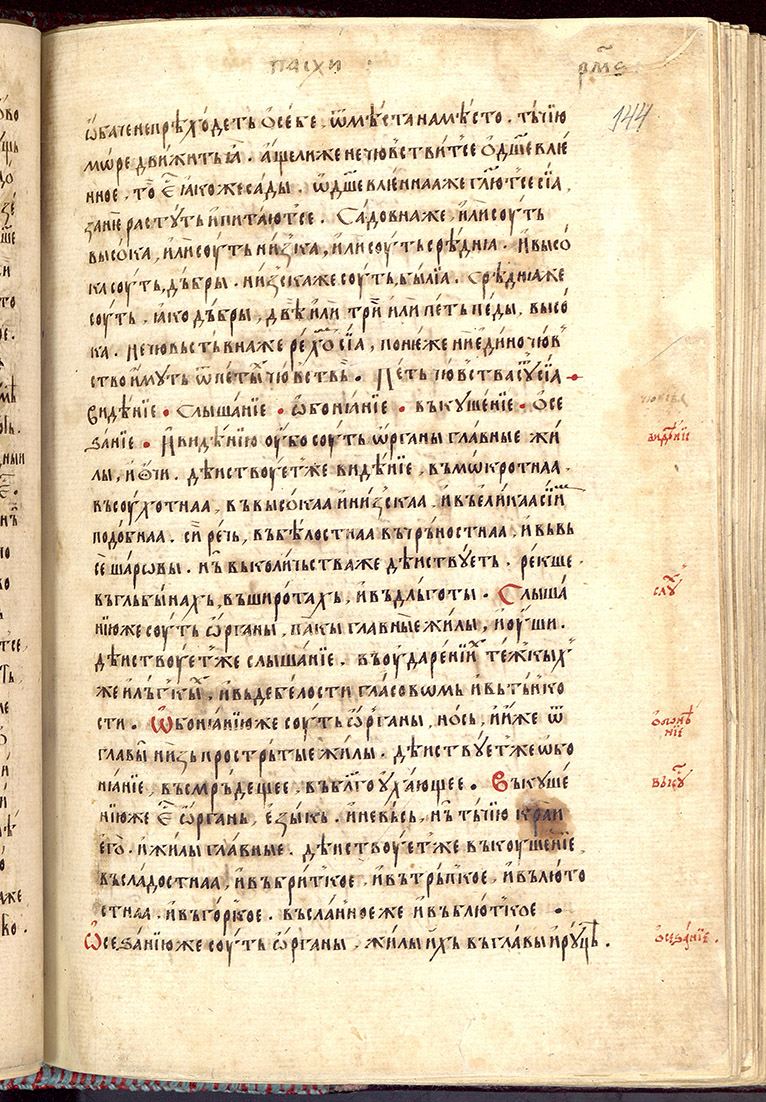 паіхи
рмѕ
144
ѡ҆баченепрѣхо́деть ѻ҆се́бе . ѿмѣ́станамѣ́сто . ты́чїю
мѡ́редви́житьꙗ . а҆щелижене чю́вствитсе ѻ҆дш҃евлїе́
нное . то̀ є҆ ꙗ҆коже са́ды . ѡ҆дш҃евлїе́ннаа же гл҃ю́тсе сїа̀ ,
занѐ расту́ть и҆пита́ютсе . Садовна же , и҆лѝ сѹ́ть
высо́ка , и҆лѝ сѹ́ть ни́зка , и҆лѝ сѹ́ть срѣ́днїа . и҆ высо́
ка сѹ́ть, дѫ́бры . ни́зска же сѹ́ть, бы́лїа . Срѣ́днїа же
сѹ́ть . ꙗ҆ко дѫ́бры , двѣ̀ и҆лѝ трѝ и҆лѝ пе́ть пе́ды , высо́
ка . нечю́вьствьна же рѣхомь сїа̀ , поне́же ни е҆ди́но чю́в
ство и҆му́ть ѿ пе́тых чю́вствь . Пе́ть чю́вства су́ть сїа̀
видѣ́нїе • слы́шанїе • ѡ҆боня́нїе • въкуше́нїе • ѻ҆се
за́нїе • И҆ видѣ́нїю ѹ҆́бо сѹ́ть ѡ҆́рганы гла́вные жи́
лы , и҆ ѻ҆́чи . дѣ́йствѹет же видѣ́нїе , въ мѡ́кротнаа .
въ сѹ́хотнаа , въ высо́каа и҆ ни́зскаа , и҆ въ ели́каа сїи́мь
подо́бнаа . си́ рѣчь , въ бѣ́лостнаа въ чръ́ностнаа , и҆ въ вь
сѐ шаро́вы . нъ̀ въ коли́чьства же дѣ́йствуеть . ре́кше
въ глъбина́хъ, въ широ́тахъ , и҆ въ длъготы̀ . Слы́ша
нїю же сѹ́ть ѡ҆́рганы , па́кы гла́вные жи́лы , и҆ ѹ҆́ши .
дѣ́йствѹет же слы́шанїе . въ ѹ҆даре́нїих те́жкых
же и҆ лъ́гкых , и҆ вь дебе́лости гла́совѡмь и҆ въ тъ́нко
сти . Ѡ҆боня́нїю же сѹ́ть ѡ҆́рганы , но́сь , и҆ и҆́же ѿ
главы̀ ни́зь простръ́тые жи́лы . дѣ́йствует же ѡ҆бо
ня́нїе , въ смръ́дещее . въ бл҃гоуха́ющее . Въкуше́
нїю же є҆ ѡ҆́рганъ , е҆зы́къ . и҆ не ве́сь , нъ̀ ты́чїю краѝ
е҆го̀ . и҆ жи́лы гла́вные . дѣ́йствѹет же въкѹше́нїе ,
въ сла́достнаа , и҆ въ бри́ткое . и҆ въ тръ́пкое , и҆ въ лю́то
стнаа . и҆ въ го́ркое . въ сла́нное же и҆ въ блю́ткое .
Ѡ҆сеза́нїю же сѹ́ть ѡ҆́рганы , жи́лы и҆хъ въ главы̀ и҆ ру́цѣ .
видѣ́нїе
слу́х
ѻ҆бонѣ
нїе
въкус
ѻ҆сеза́нїе .